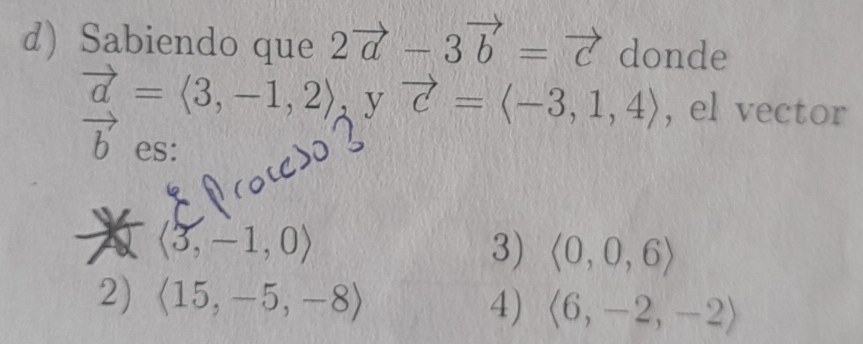 d) Sabiendo que 2a⃗ − 3b⃗ = c⃗ donde
a⃗ = ⟨3, −1, 2⟩, y c⃗ = ⟨−3, 1, 4⟩, el vector
b⃗ es:
¿Proceso?
⟨3, −1, 0⟩
3) ⟨0, 0, 6⟩
2) ⟨15, −5, −8⟩
4) ⟨6, −2, −2⟩